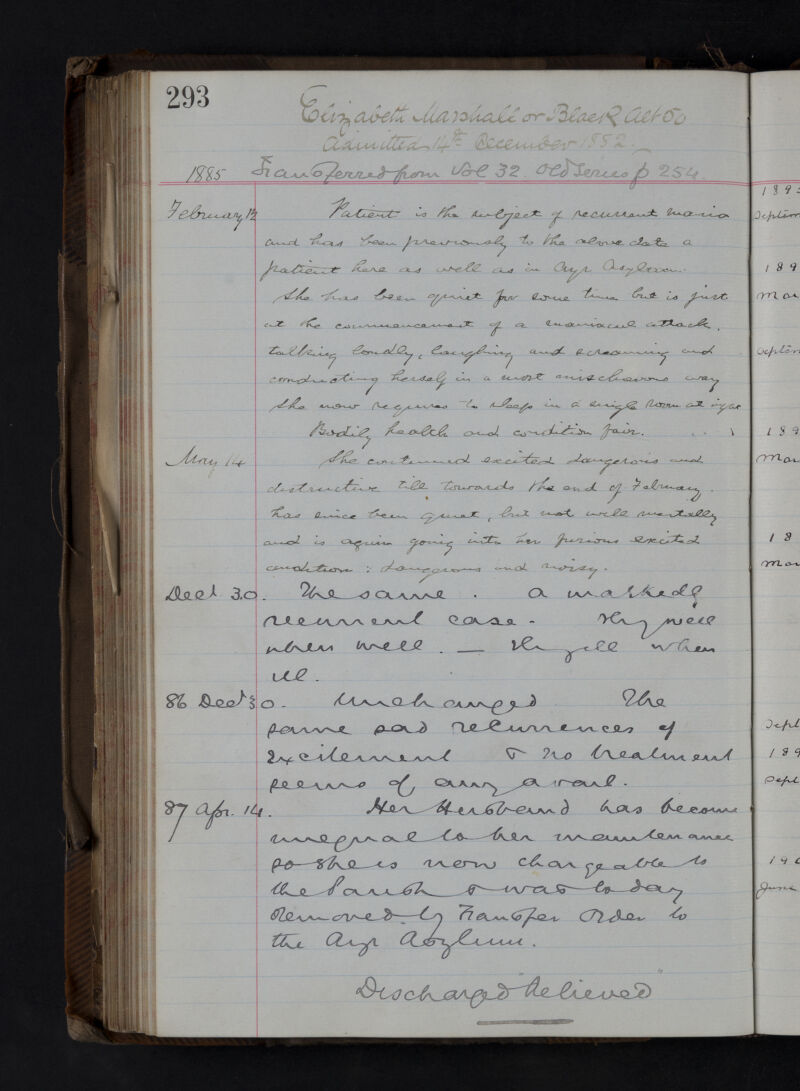 293
Elizabeth Marshall or Black aet 50
Admitted 14th December 1882.
1885 Transferred from Vol 32. Old Series p 254.
February 12 Patient is the subject of recurrent mania
and has been previously to the above date a
patient here as well as in Ayr Asylum.
She has been quiet for some time but is just
at the commencement of a maniacal attack,
talking loudly, laughing and screaming and
conducting herself in a most mischievous way
She now requires to sleep in a single room at night
Bodily health and condition fair.
May 14 She continued excited dangerous and
destructive till towards the end of February.
has since been quiet, but not well mentally
and is again going into her furious excited
condition: dangerous and noisy.
Decr 30. The same. A markedly
recurrent case. Very well
when well. — Very ill when
ill.
86 Decr 30. Unchanged The
same sad recurrences of
Excitement & no treatment
seems of any avail.
87 Apr. 14. Her Husband has become
unequal to her maintenance
so she is now chargeable to
the Parish & was to day
Removed by Transfer Order to
the Ayr Asylum.
Discharged "Relieved"
189
Septem
189
Mar
Septem
189
Mar
18
Mar
Sept
189
Sept
190
June